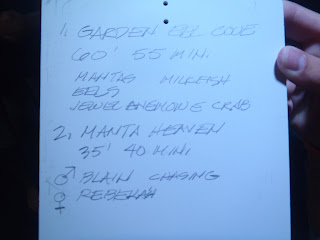 1. GARDEN EEL COVE
60' 55 MINI
MANTAS MILKFISH
EELS
JEWEL ANEMONE CRAB
2. MANTA HEAVEN
35' 40 MINI
♂ BLAIN CHASING
♀ REBEKAH